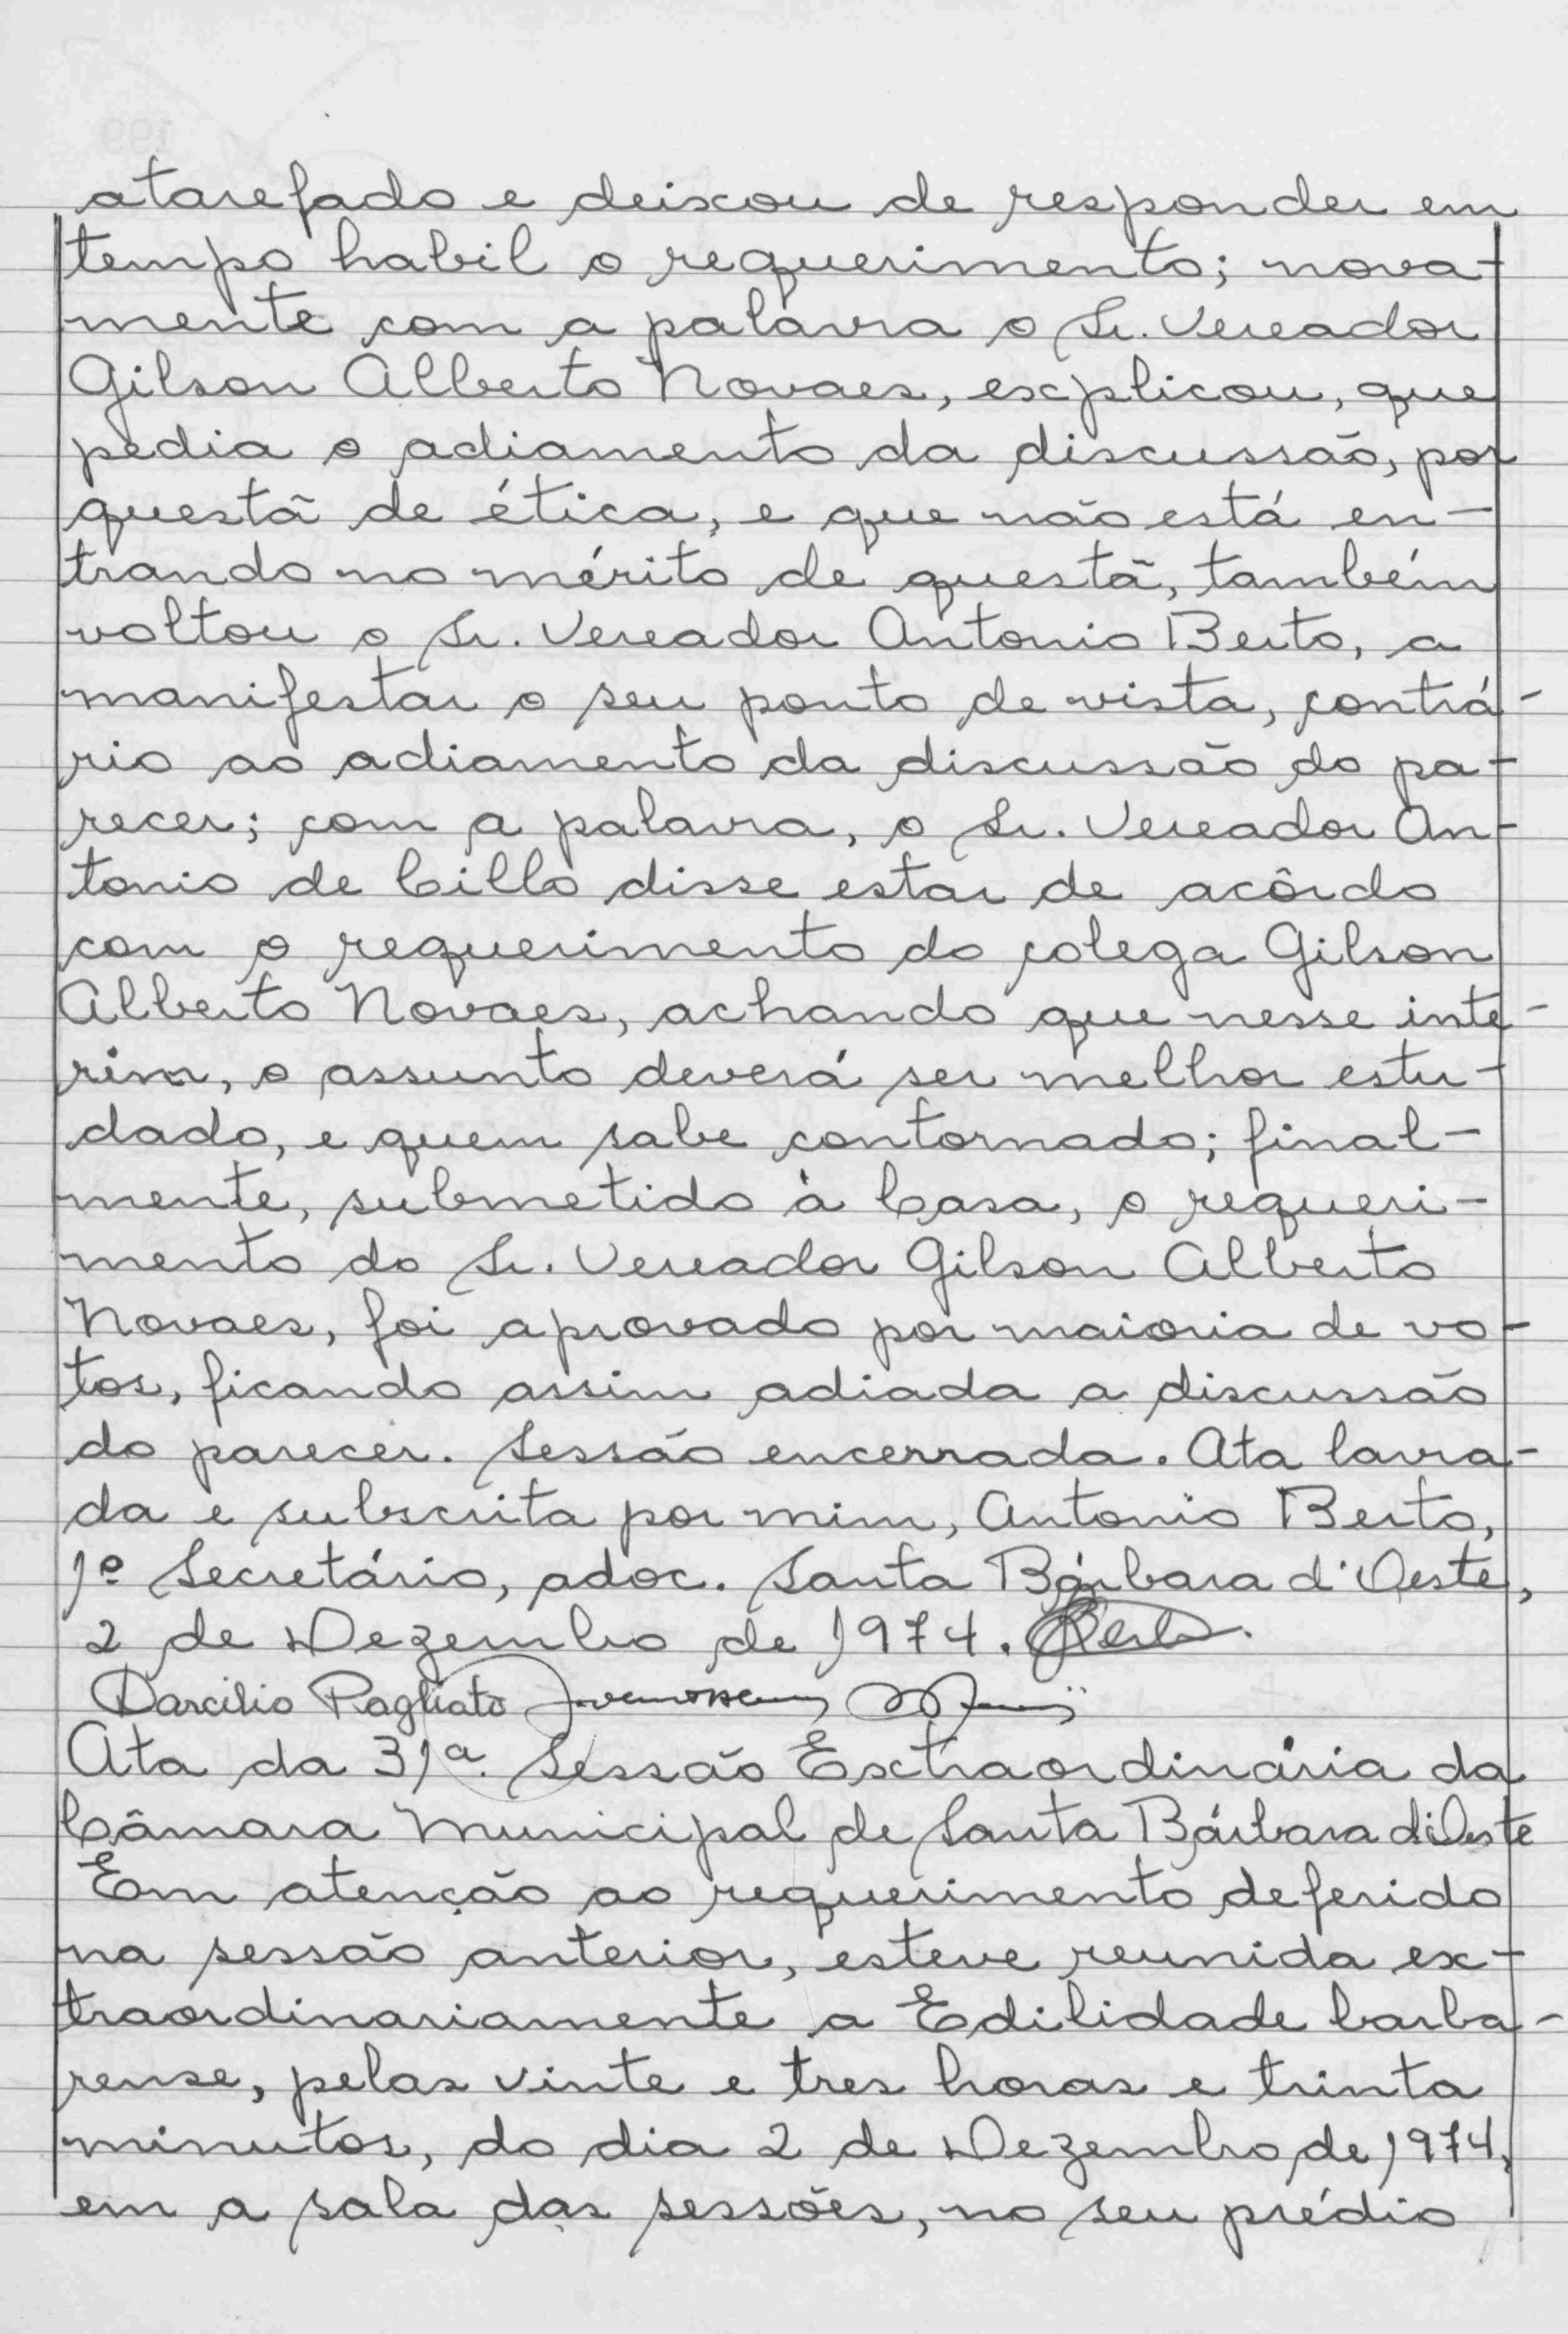 atarefado e deixou de responder em
tempo habil o requerimento; nova-
mente com a palavra o Sr. Vereador
Gilson Alberto Novaes, explicou, que
pedia o adiamento da discussão, por
questã de ética, e que não está en-
trando no mérito de questã, também
voltou o Sr. Vereador Antonio Berto, a
manifestar o seu ponto de vista, contrá-
rio ao adiamento da discussão do pa-
recer; com a palavra, o Sr. Vereador An-
tonio de Cillo disse estar de acôrdo
com o requerimento do colega Gilson
Alberto Novaes, achando que nesse inte-
rim, o assunto deverá ser melhor estu-
dado, e quem sabe contornado; final-
mente, submetido à Casa, o requeri-
mento do Sr. Vereador Gilson Alberto
Novaes, foi aprovado por maioria de vo-
tos, ficando assim adiada a discussão
do parecer. Sessão encerrada. Ata lavra-
da e subscrita por mim, Antonio Berto,
1º Secretário, adoc. Santa Bárbara d'Oeste,
2 de Dezembro de 1974. Berto.
Darcilio Pagliato
Ata da 31ª Sessão Extraordinária da
Câmara Municipal de Santa Bárbara d'Oeste
Em atenção ao requerimento deferido
na sessão anterior, esteve reunida ex-
traordinariamente a Edilidade barba-
rense, pelas vinte e tres horas e trinta
minutos, do dia 2 de Dezembro de 1974,
em a sala das sessões, no seu prédio